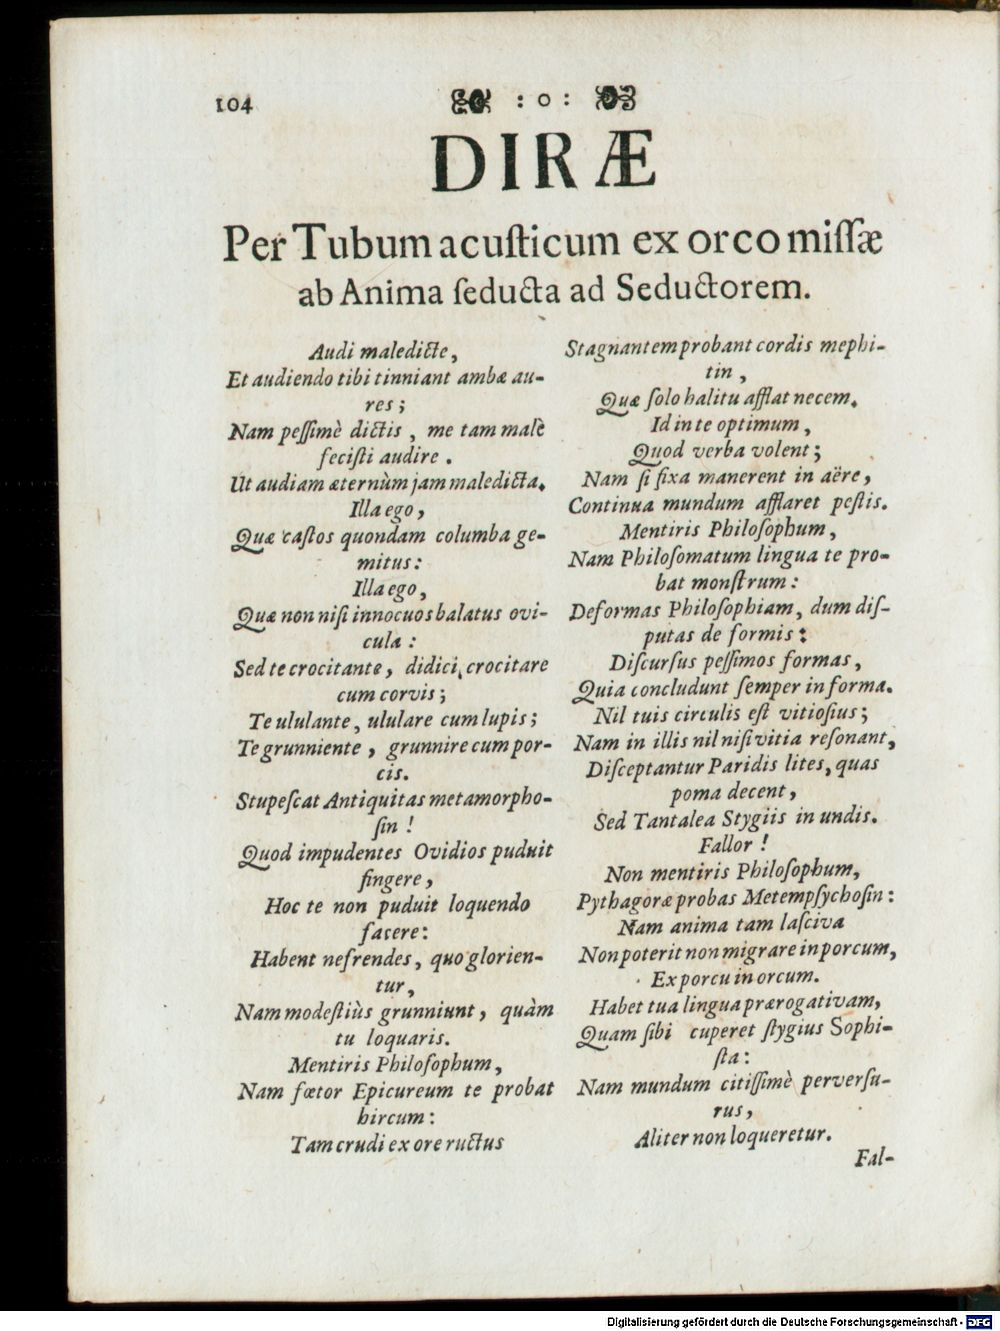 104
: o :
DIRÆ
Per Tubum acuſticum ex orco miſſæ
ab Anima ſeducta ad Seductorem.
Audi maledicte,
Et audiendo tibi tinniant ambæ au-
res;
Nam peſſimè dictis, me tam malè
feciſti audire.
Ut audiam æternùm jam maledicta.
Illa ego,
Quæ caſtos quondam columba ge-
mitus:
Illa ego,
Quæ non niſi innocuos balatus ovi-
cula:
Sed te crocitante, didici crocitare
cum corvis;
Te ululante, ululare cum lupis;
Te grunniente, grunnire cum por-
cis.
Stupeſcat Antiquitas metamorpho-
ſin!
Quod impudentes Ovidios puduit
fingere,
Hoc te non puduit loquendo
facere:
Habent nefrendes, quo glorien-
tur,
Nam modeſtiùs grunniunt, quàm
tu loquaris.
Mentiris Philoſophum,
Nam fœtor Epicureum te probat
hircum:
Tam crudi ex ore ructus
Stagnantem probant cordis mephi-
tin,
Quæ ſolo halitu afflat necem.
Id in te optimum,
Quod verba volent;
Nam ſi fixa manerent in aëre,
Continua mundum afflaret peſtis.
Mentiris Philoſophum,
Nam Philoſomatum lingua te pro-
bat monſtrum:
Deformas Philoſophiam, dum diſ-
putas de formis:
Diſcurſus peſſimos formas,
Quia concludunt ſemper in forma.
Nil tuis circulis eſt vitioſius;
Nam in illis nil niſi vitia reſonant,
Diſceptantur Paridis lites, quas
poma decent,
Sed Tantalea Stygiis in undis.
Fallor!
Non mentiris Philoſophum,
Pythagoræ probas Metempſychoſin:
Nam anima tam laſciva
Non poterit non migrare in porcum,
Ex porcu in orcum.
Habet tua lingua prærogativam,
Quam ſibi cuperet ſtygius Sophi-
ſta:
Nam mundum citiſſimè perverſu-
rus,
Aliter non loqueretur.
Fal-
Digitalisierung gefördert durch die Deutsche Forschungsgemeinschaft - DFG